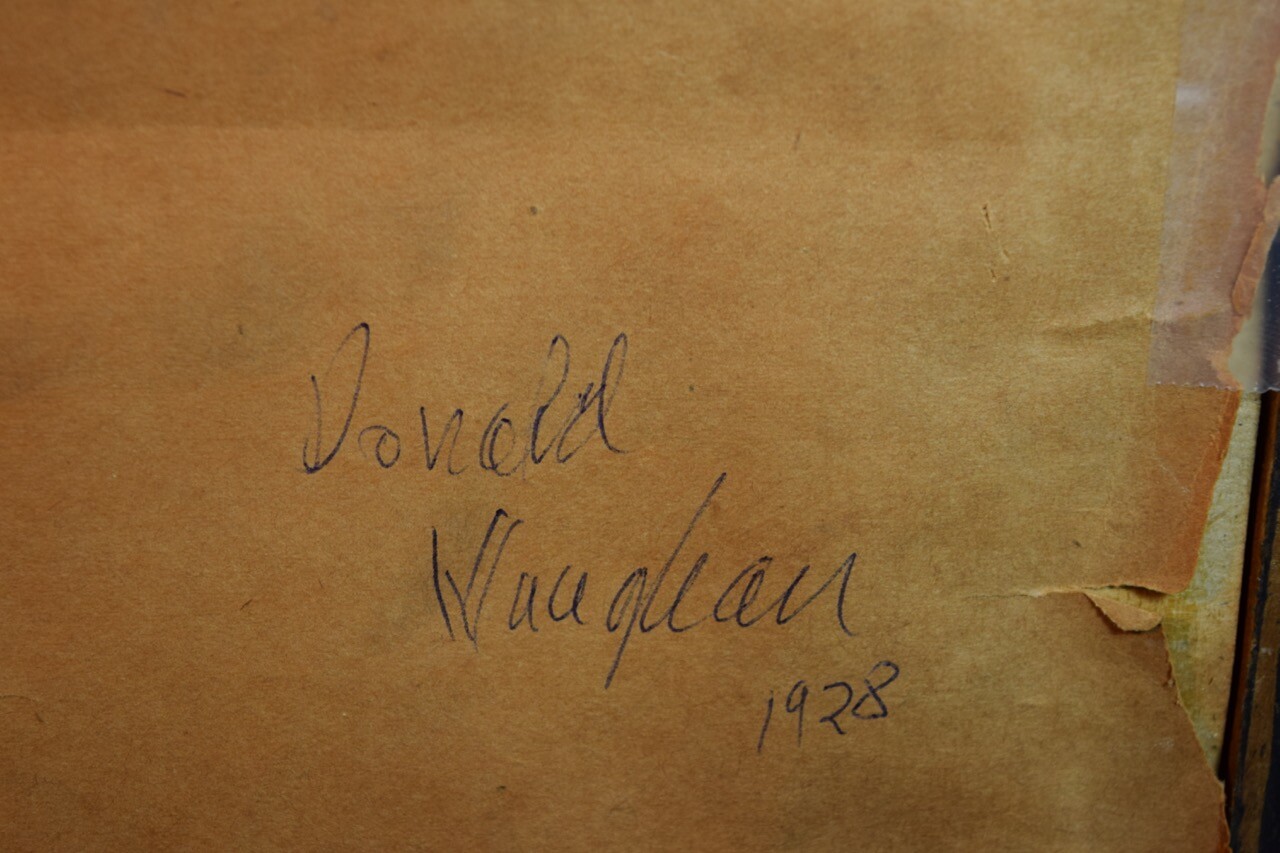 Donald
Vaughan
1928